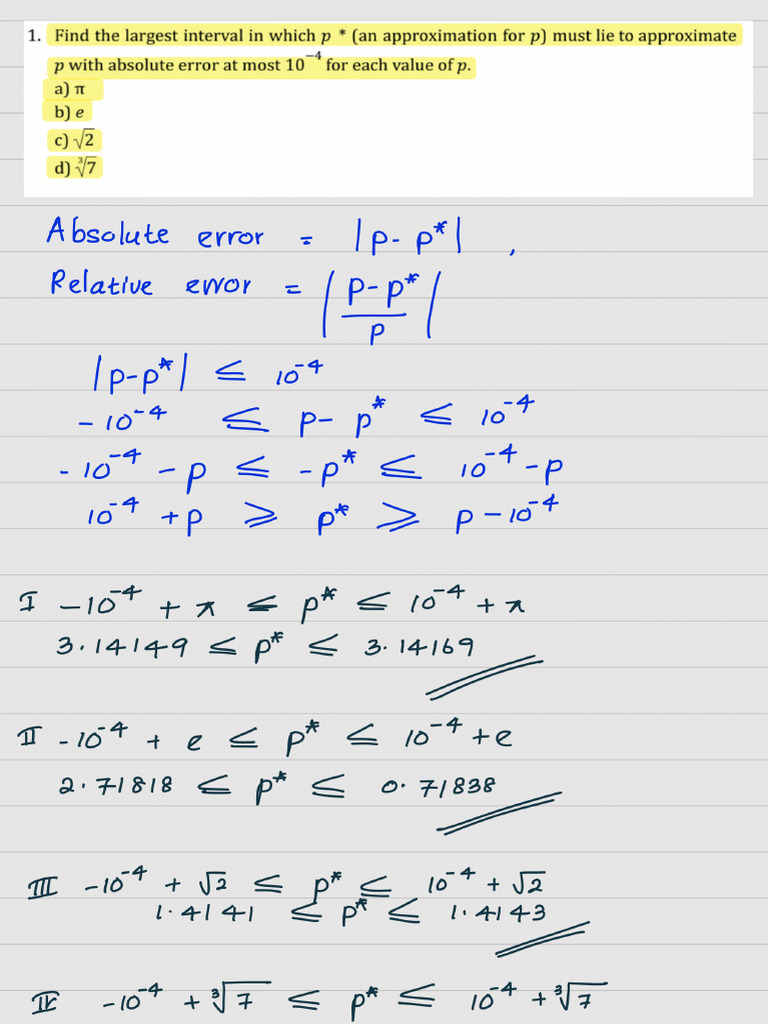 1. Find the largest interval in which p * (an approximation for p) must lie to approximate
p with absolute error at most 10⁻⁴ for each value of p.
a) π
b) e
c) √2
d) ∛7
Absolute error = |p - p*| ,
Relative error = |p - p* / p|
|p - p*| ≤ 10⁻⁴
- 10⁻⁴ ≤ p - p* ≤ 10⁻⁴
- 10⁻⁴ - p ≤ - p* ≤ 10⁻⁴ - p
10⁻⁴ + p ≥ p* ≥ p - 10⁻⁴
I - 10⁻⁴ + π ≤ p* ≤ 10⁻⁴ + π
3.14149 ≤ p* ≤ 3.14169
II - 10⁻⁴ + e ≤ p* ≤ 10⁻⁴ + e
2.71818 ≤ p* ≤ 0.71838
III - 10⁻⁴ + √2 ≤ p* ≤ 10⁻⁴ + √2
1.4141 ≤ p* ≤ 1.4143
IV - 10⁻⁴ + ∛7 ≤ p* ≤ 10⁻⁴ + ∛7